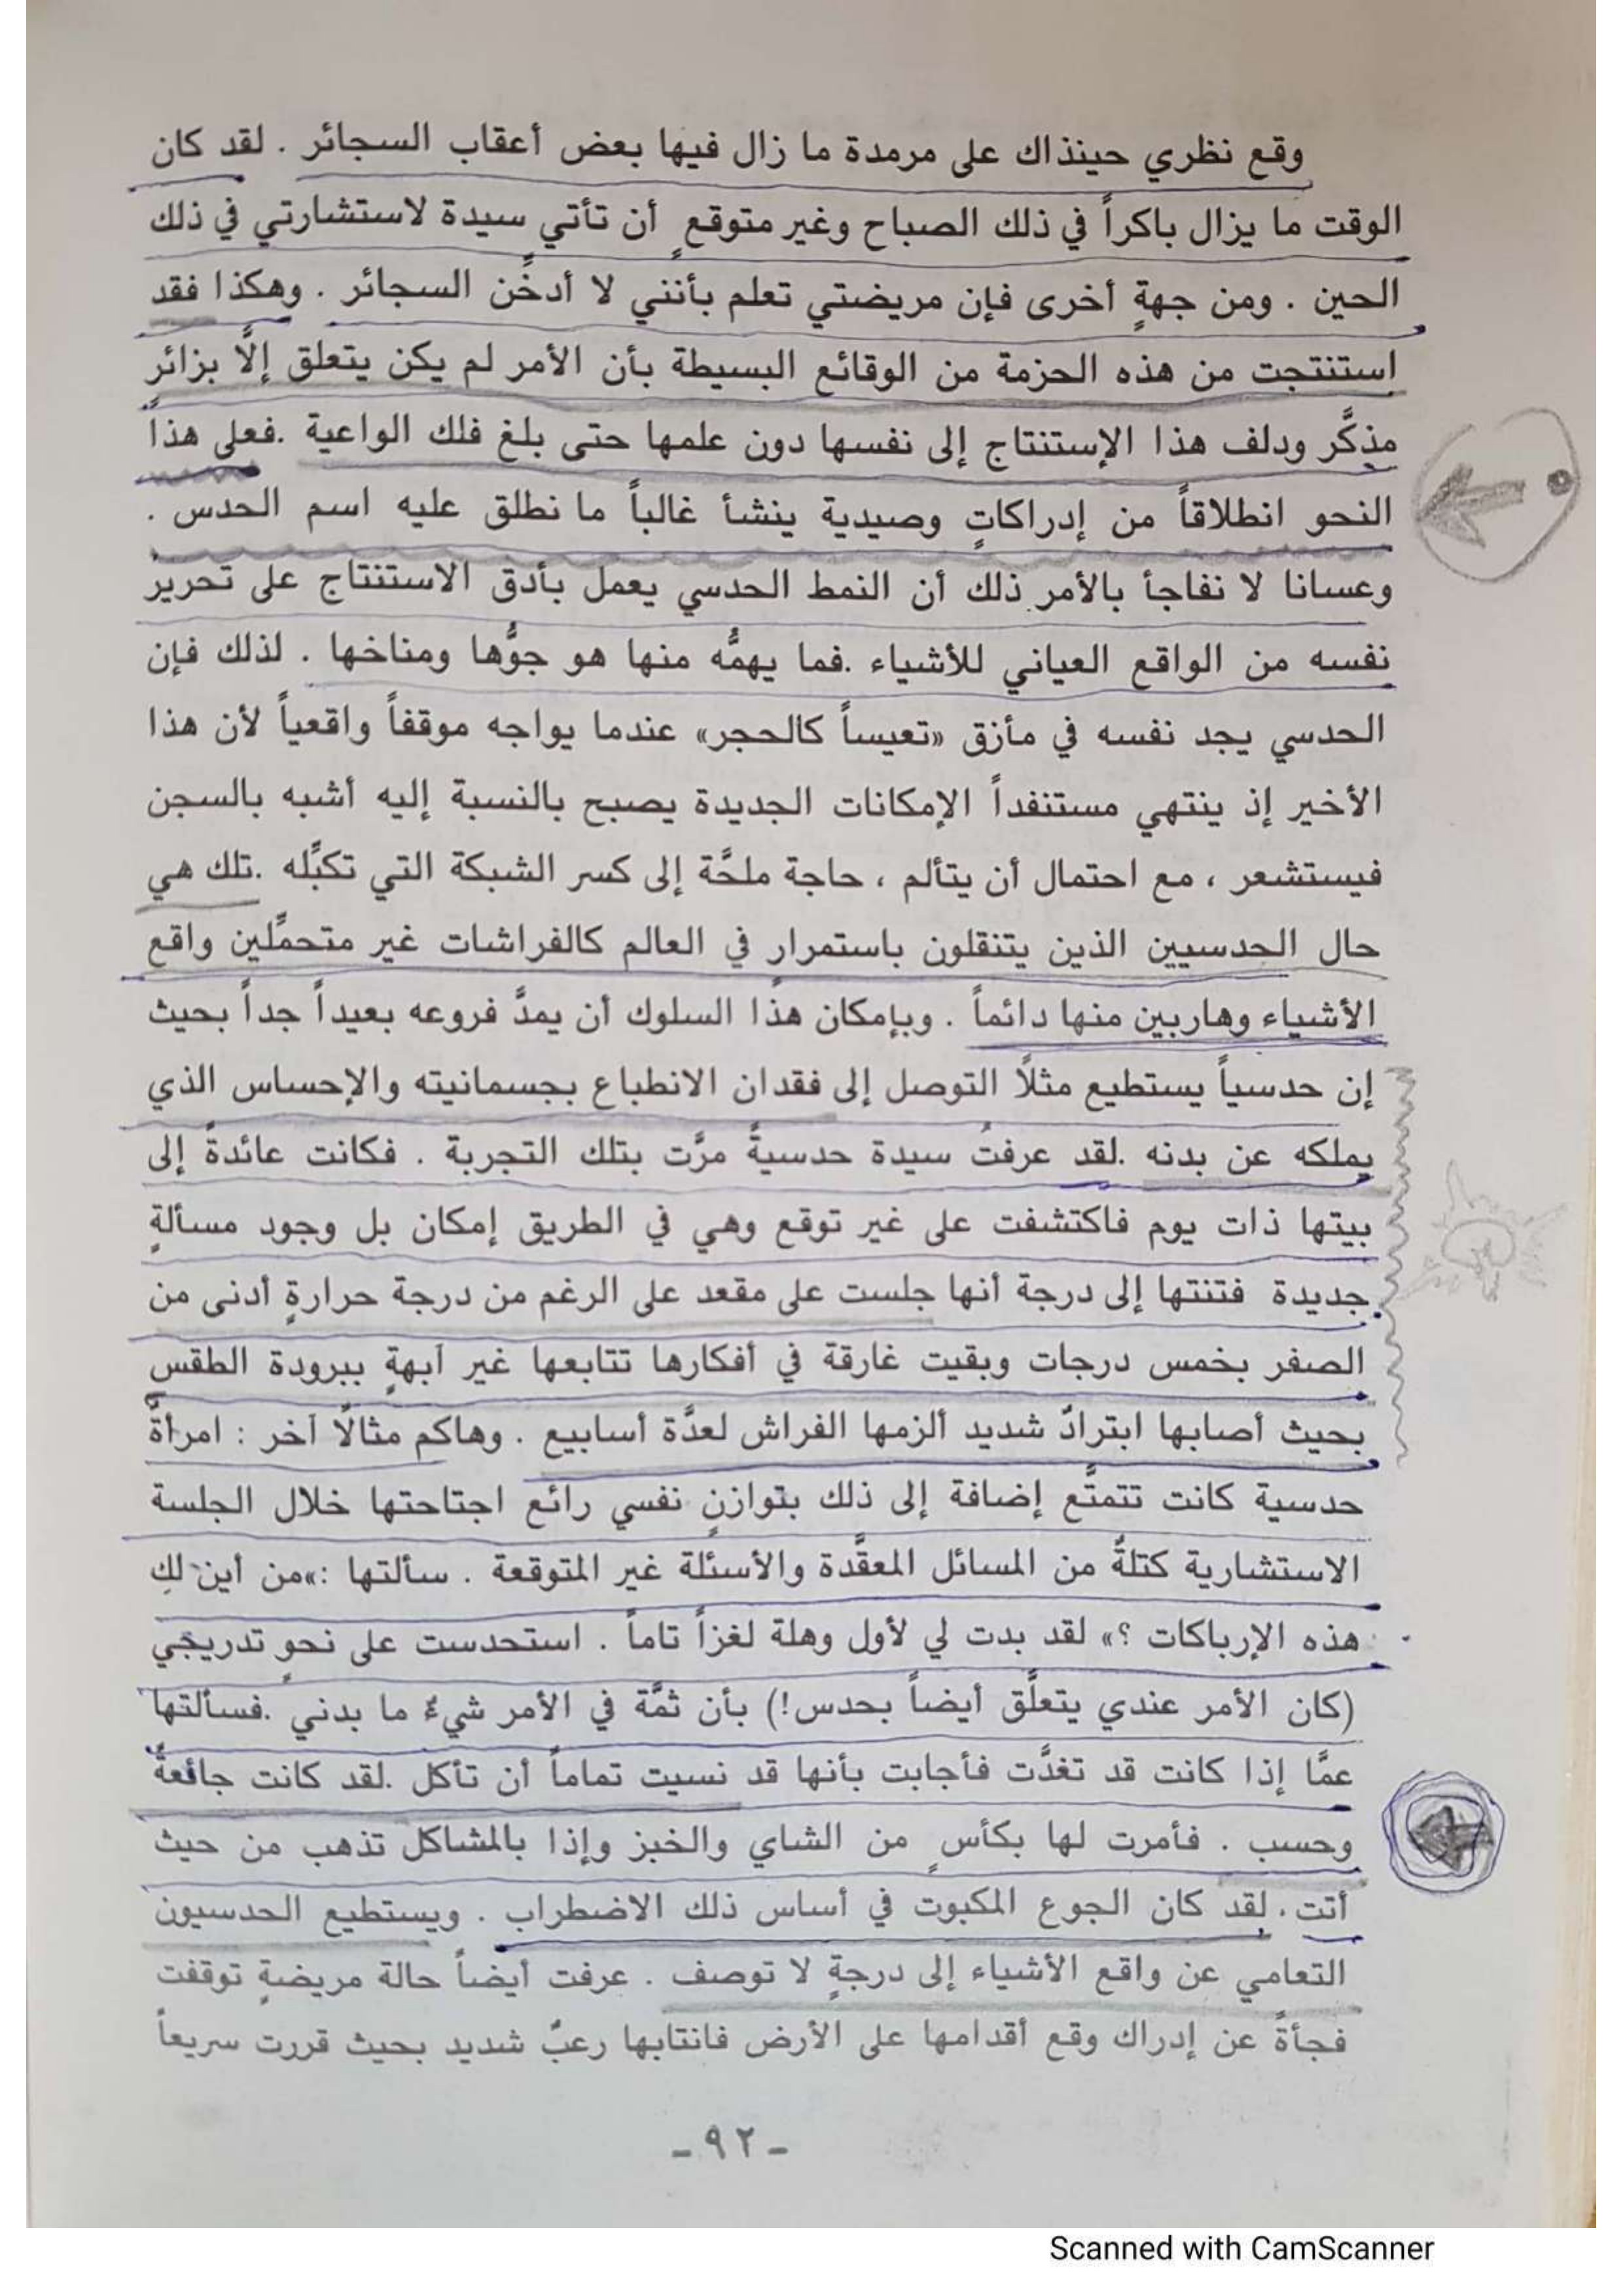 وقع نظري حينذاك على مرمدة ما زال فيها بعض أعقاب السجائر . لقد كان
الوقت ما يزال باكراً في ذلك الصباح وغير متوقعٍ أن تأتي سيدة لاستشارتي في ذلك
الحين . ومن جهةٍ أخرى فإن مريضتي تعلم بأنني لا أدخِّن السجائر . وهكذا فقد
استنتجت من هذه الحزمة من الوقائع البسيطة بأن الأمر لم يكن يتعلق إلَّا بزائر
مذكَّر ودلف هذا الإستنتاج إلى نفسها دون علمها حتى بلغ فلك الواعية .فعلى هذا
النحو انطلاقاً من إدراكاتٍ وصيدية ينشأ غالباً ما نطلق عليه اسم الحدس .
وعسانا لا نفاجأ بالأمر ذلك أن النمط الحدسي يعمل بأدق الاستنتاج على تحرير
نفسه من الواقع العياني للأشياء .فما يهمُّه منها هو جوُّها ومناخها . لذلك فإن
الحدسي يجد نفسه في مأزق «تعيساً كالحجر» عندما يواجه موقفاً واقعياً لأن هذا
الأخير إذ ينتهي مستنفداً الإمكانات الجديدة يصبح بالنسبة إليه أشبه بالسجن
فيستشعر ، مع احتمال أن يتألم ، حاجة ملحَّة إلى كسر الشبكة التي تكبِّله .تلك هي
حال الحدسيين الذين يتنقلون باستمرار في العالم كالفراشات غير متحمِّلين واقع
الأشياء وهاربين منها دائماً . وبإمكان هذا السلوك أن يمدَّ فروعه بعيداً جداً بحيث
إن حدسياً يستطيع مثلًا التوصل إلى فقدان الانطباع بجسمانيته والإحساس الذي
يملكه عن بدنه .لقد عرفتُ سيدة حدسيةً مرَّت بتلك التجربة . فكانت عائدةً إلى
بيتها ذات يوم فاكتشفت على غير توقع وهي في الطريق إمكان بل وجود مسألةٍ
جديدة فتنتها إلى درجة أنها جلست على مقعد على الرغم من درجة حرارةٍ أدنى من
الصفر بخمس درجات وبقيت غارقة في أفكارها تتابعها غير آبهةٍ ببرودة الطقس
بحيث أصابها ابترادٌ شديد ألزمها الفراش لعدَّة أسابيع . وهاكم مثالًا آخر : امرأةٌ
حدسية كانت تتمتَّع إضافة إلى ذلك بتوازنٍ نفسي رائع اجتاحتها خلال الجلسة
الاستشارية كتلةٌ من المسائل المعقَّدة والأسئلة غير المتوقعة . سألتها :«من أين لكِ
هذه الإرباكات ؟» لقد بدت لي لأول وهلة لغزاً تاماً . استحدست على نحو تدريجي
(كان الأمر عندي يتعلَّق أيضاً بحدس!) بأن ثمَّة في الأمر شيءٌ ما بدني .فسألتها
عمَّا إذا كانت قد تغدَّت فأجابت بأنها قد نسيت تماماً أن تأكل .لقد كانت جائعةً
وحسب . فأمرت لها بكأسٍ من الشاي والخبز وإذا بالمشاكل تذهب من حيث
أتت . لقد كان الجوع المكبوت في أساس ذلك الاضطراب . ويستطيع الحدسيون
التعامي عن واقع الأشياء إلى درجةٍ لا توصف . عرفت أيضاً حالة مريضةٍ توقفت
فجأةً عن إدراك وقع أقدامها على الأرض فانتابها رعبٌ شديد بحيث قررت سريعاً
- ٩٢ -
Scanned with CamScanner